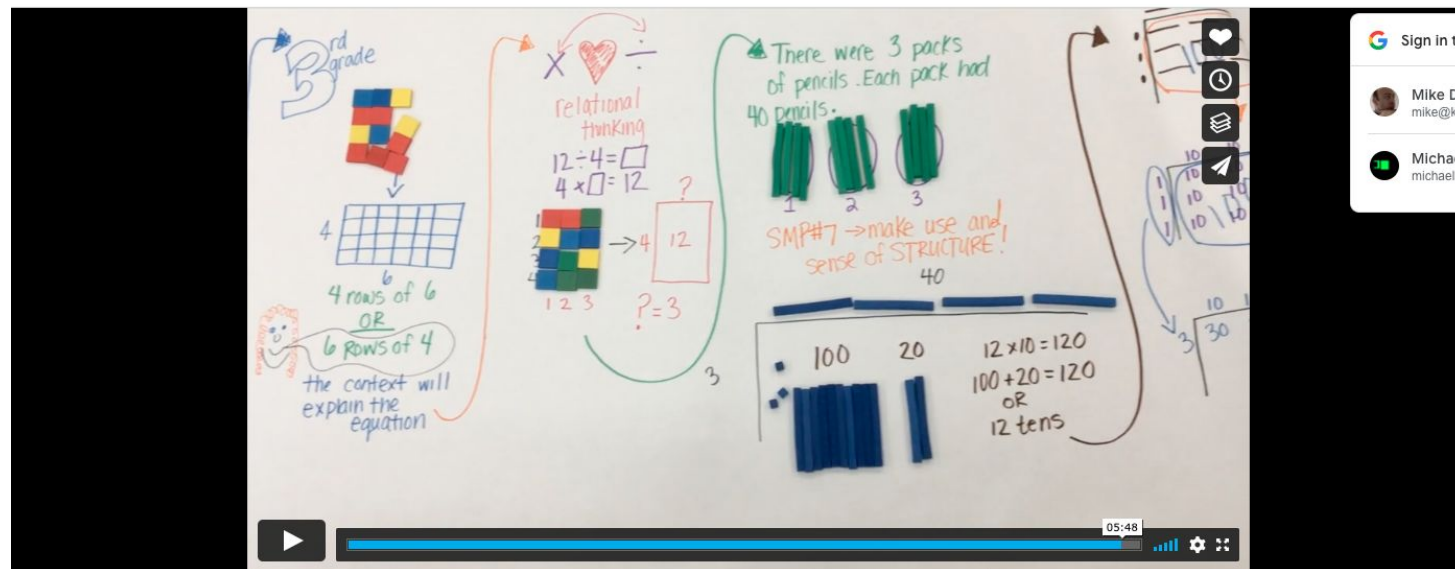 3rd
grade
4
6
4 rows of 6
OR
6 rows of 4
the context will
explain the
equation
× ÷
relational
thinking
12 ÷ 4 = □
4 × □ = 12
1
2
3
4
1 2 3
?
4 12
? = 3
There were 3 packs
of pencils. Each pack had
40 pencils.
1 2 3
SMP#7 → make use and
sense of STRUCTURE!
40
3
100 20
12 × 10 = 120
100 + 20 = 120
OR
12 tens
10 10
1 10 10
1 10 10
1 10 10
10
3 30
05:48
Sign in
Mike